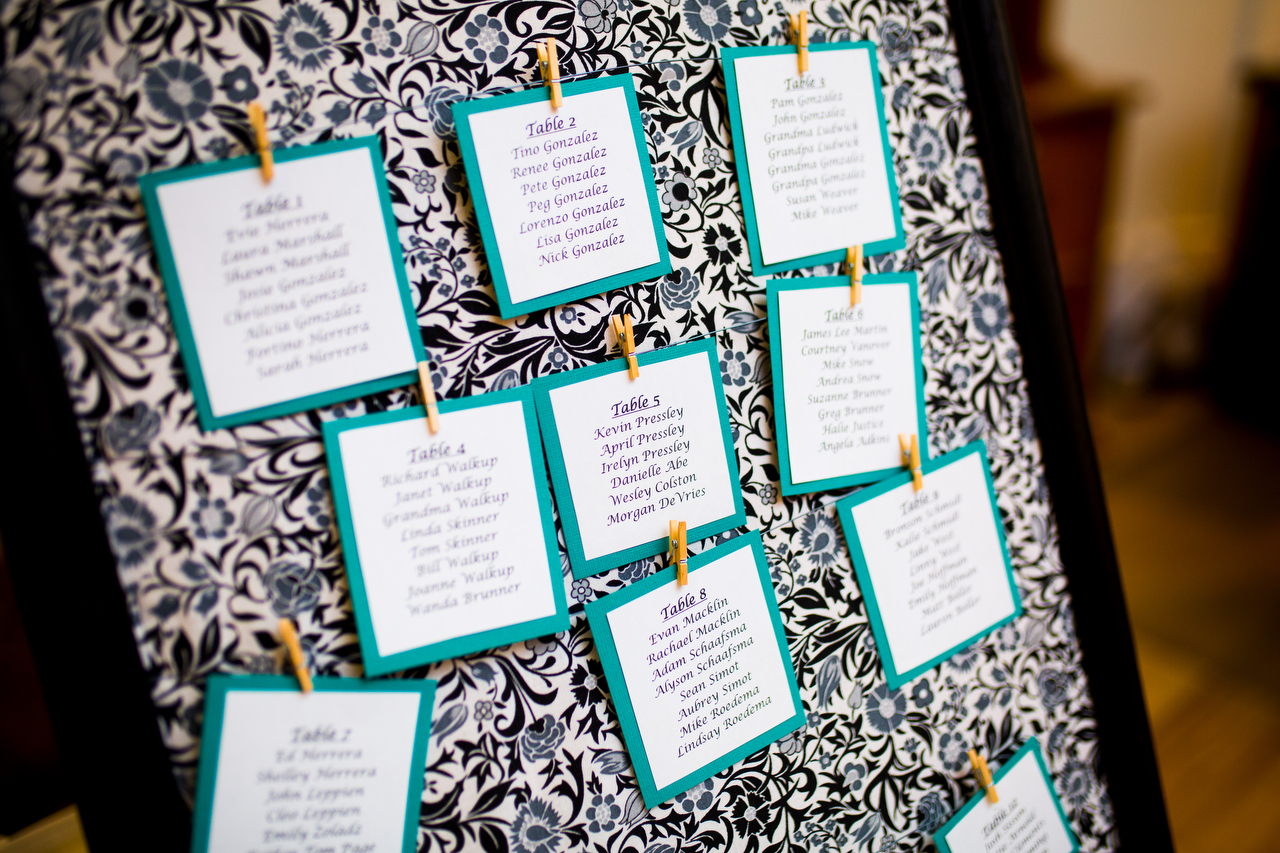 Table 1
Evie Herrera
Laura Marshall
Shawn Marshall
Josie Gonzalez
Christina Gonzalez
Alicia Gonzalez
Fortino Herrera
Sarah Herrera
Table 2
Tino Gonzalez
Renee Gonzalez
Pete Gonzalez
Peg Gonzalez
Lorenzo Gonzalez
Lisa Gonzalez
Nick Gonzalez
Table 3
Pam Gonzalez
John Gonzalez
Grandma Ludwick
Grandpa Ludwick
Grandma Gonzalez
Grandpa Gonzalez
Susan Weaver
Mike Weaver
Table 4
Richard Walkup
Janet Walkup
Grandma Walkup
Linda Skinner
Tom Skinner
Bill Walkup
Joanne Walkup
Wanda Brunner
Table 5
Kevin Pressley
April Pressley
Irelyn Pressley
Danielle Abe
Wesley Colston
Morgan DeVries
Table 6
James Lee Martin
Courtney Vanover
Mike Snow
Andrea Snow
Suzanne Brunner
Greg Brunner
Halie Justice
Angela Adkins
Table 7
Ed Herrera
Shelley Herrera
John Leppien
Cleo Leppien
Emily Zoladz
Table 8
Evan Macklin
Rachael Macklin
Adam Schaafsma
Alyson Schaafsma
Sean Simot
Aubrey Simot
Mike Roedema
Lindsay Roedema
Table 9
Schmidt
Kalie Schmidt
Jake West
West
Joe Hoffman
Emily Hoffman
Matt
Lauren
Table